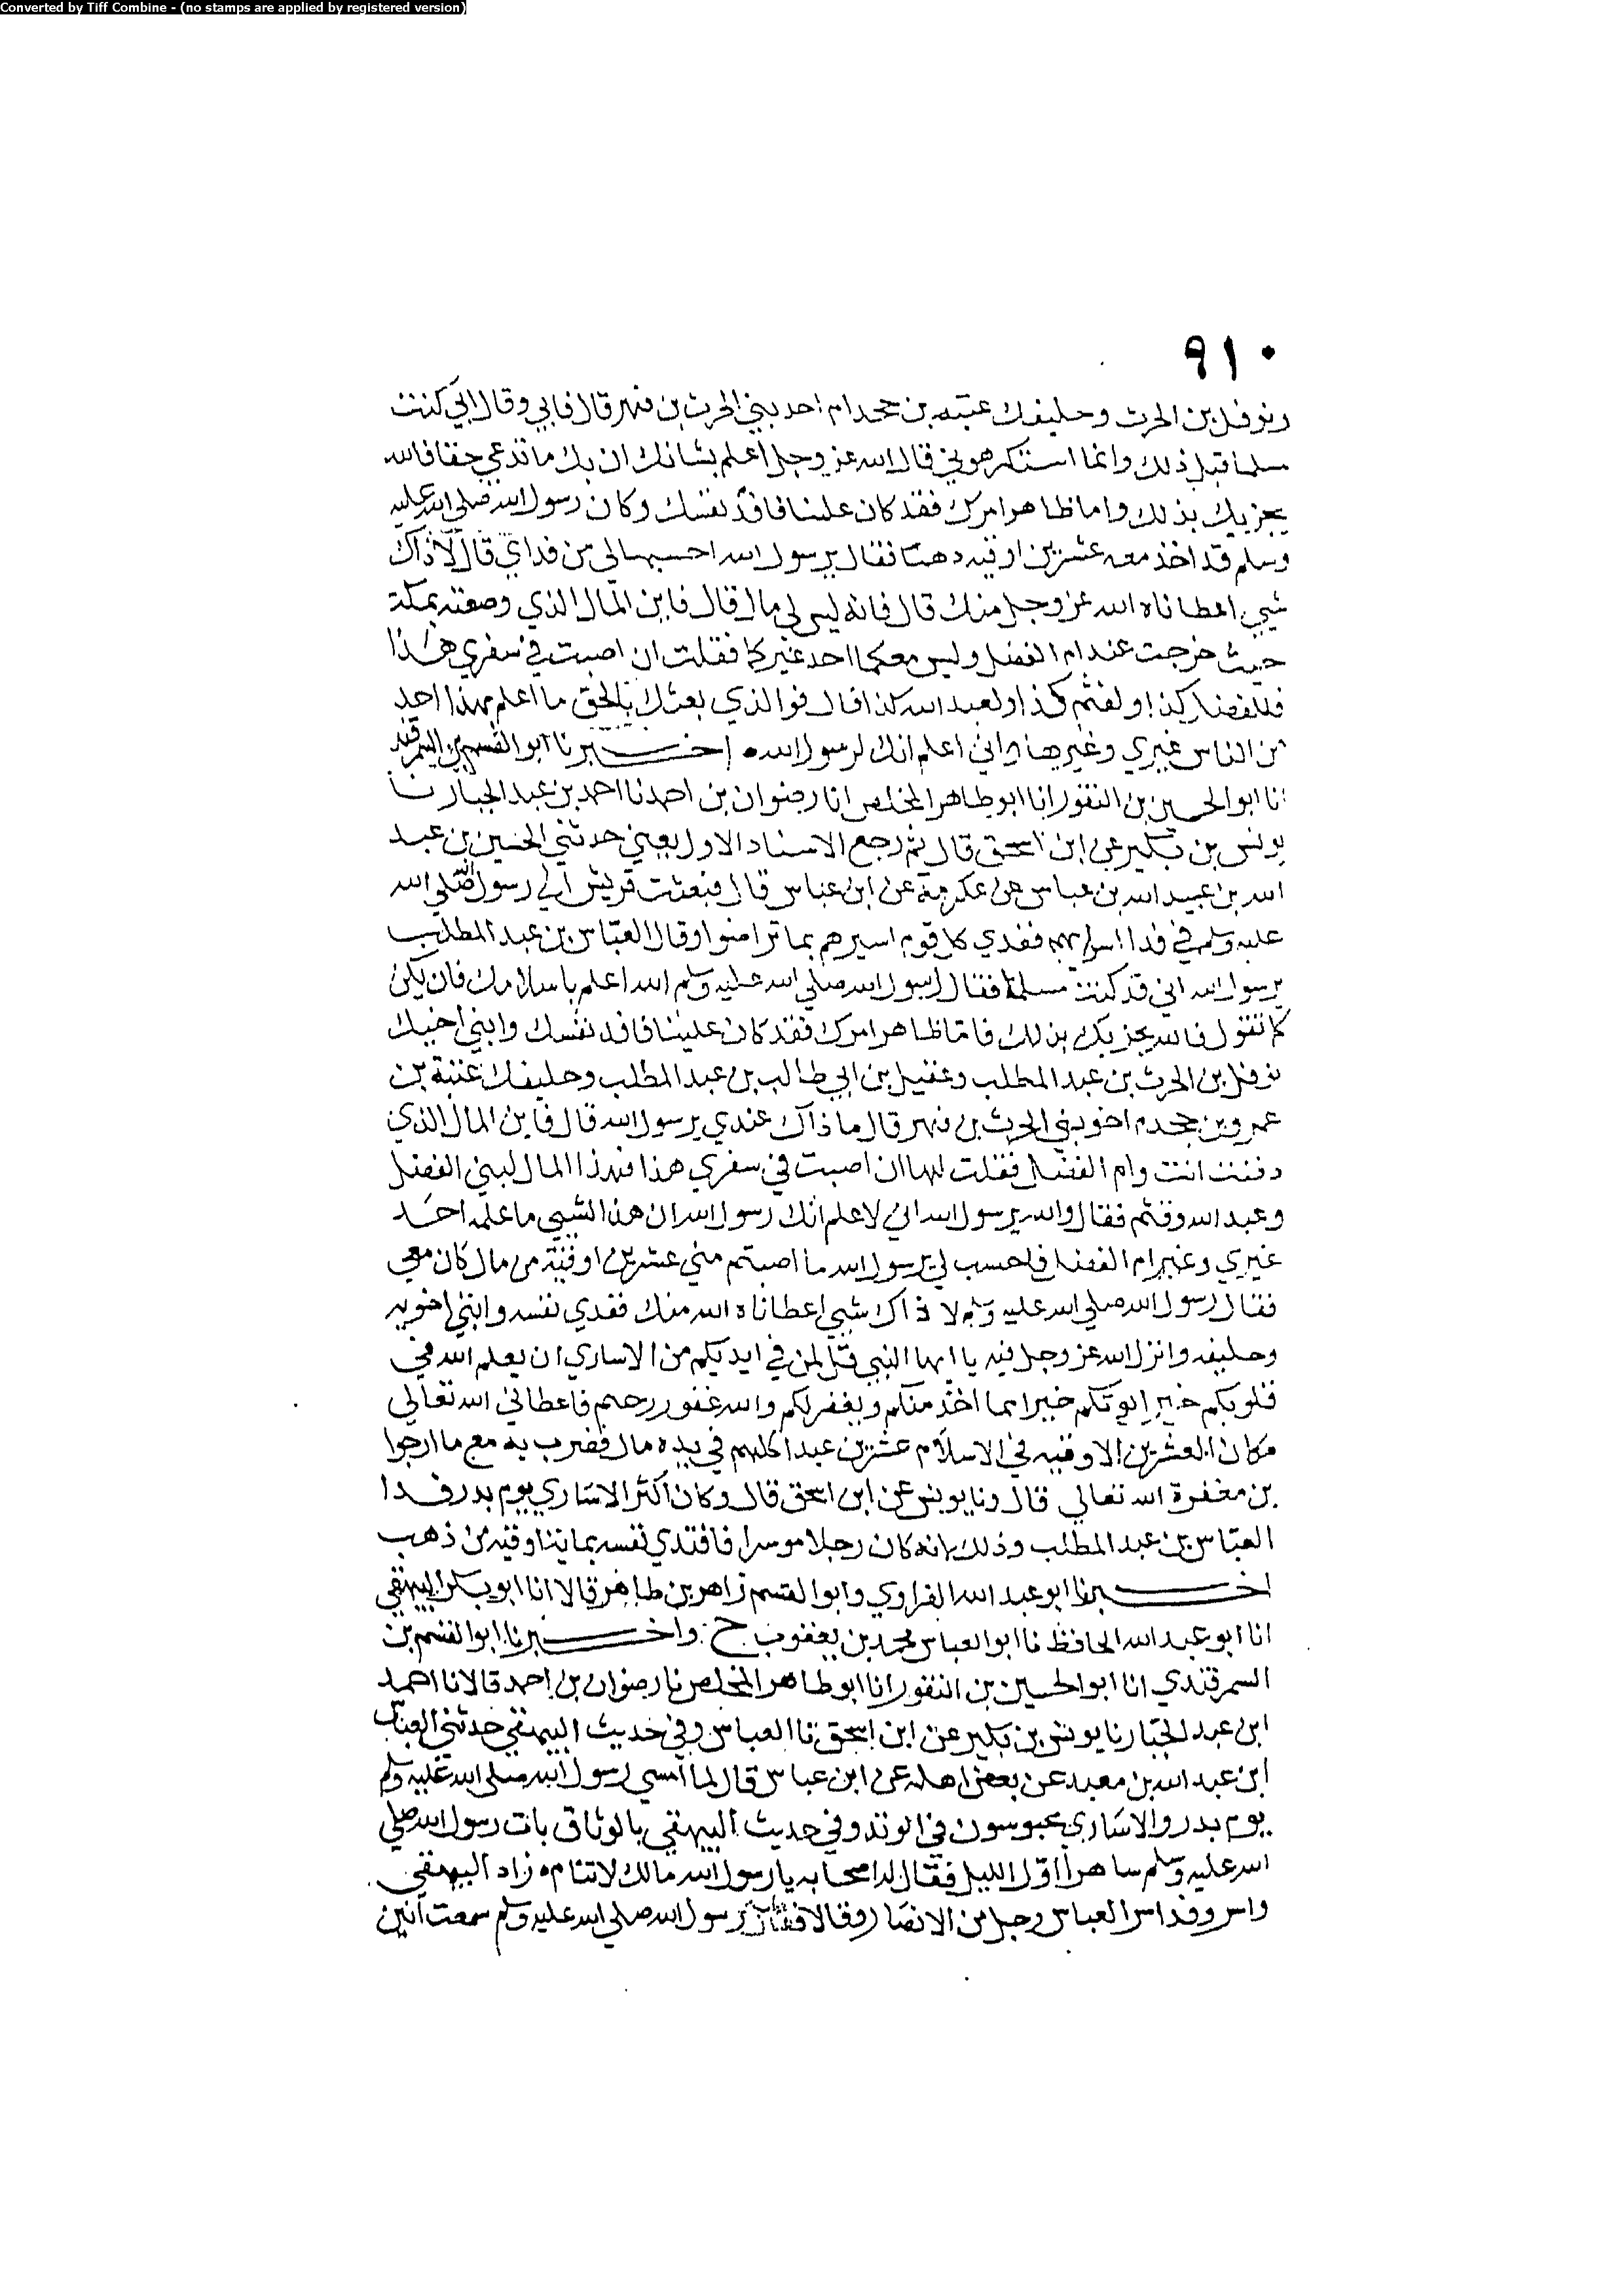 Converted by Tiff Combine - (no stamps are applied by registered version)
٩١٠
ونوفل بن الحرث وحليفك عتبه بن جحدام احد بني الحرث بن فهر قال فابي وقال اني كنت
مسلما قبل ذلك وانما استكرهوني قال الله عز وجل اعلم بشانك ان يك ما تدعي حقا فالله
يجزيك بذلك واما ظاهر امرك فقد كان علينا فافد نفسك وكان رسول الله صلى الله عليه
وسلم قد اخذ معه عشرين اوقيه ذهبا فقال يرسول الله احسبها لي من فداي قال لا ذاك
شيي اعطاناه الله عز وجل منك قال فانه ليس لي مال قال فاين المال الذي وضعته بمكة
حيث خرجت عند ام الفضل وليس معكما احد غيركما فقلت ان اصبت في سفري هذا
فللفضل كذا ولقثم كذا ولعبد الله كذا قال فوالذي بعثك بالحق ما اعلم بهذا احد
من الناس غيري وغيرها واني اعلم انك لرسول الله ٥ اخبرنا ابو القسم بن السمرقند
انا ابو الحسين بن النقور انا ابو طاهر المخلص انا رضوان بن احمد نا احمد بن عبد الجبار نا
يونس بن بكير عن ابن اسحق قال ثم رجع الاسناد الاول يعني حدثني الحسين بن عبد
الله بن عبيد الله بن عباس عن عكرمة عن ابن عباس قال فبعثت قريش الي رسول الله صلي الله
عليه وسلم في فدا اسرايهم ففدي كل قوم اسيرهم بما تراضوا وقال العباس بن عبد المطلب
يرسول الله اني قد كنت مسلما فقال رسول الله صلي الله عليه وسلم الله اعلم باسلامك فان يكن
كما تقول فالله يجزيك بذلك فاما ظاهر امرك فقد كان علينا فافد نفسك وابني اخيك
نوفل بن الحرث بن عبد المطلب وعقيل بن ابي طالب بن عبد المطلب وحليفك عتبة بن
عمرو بن جحدم اخو بني الحرث بن فهر قال ما ذاك عندي يرسول الله قال فاين المال الذي
دفنت انت وام الفضل فقلت لها ان اصبت في سفري هذا فهذا المال لبني الفضل
وعبد الله وقثم فقال والله يرسول الله اني لاعلم انك رسول الله ان هذا الشيي ما علمه احد
غيري وغير ام الفضل فاحسب لي يرسول الله ما اصبتم مني عشرين اوقية من مال كان معي
فقال رسول الله صلي الله عليه وسلم لا ذاك شيي اعطاناه الله منك ففدي نفسه وابني اخويه
وحليفه وانزل الله عز وجل فيه يا ايها النبي قل لمن في ايديكم من الاساري ان يعلم الله في
قلوبكم خيرا يوتكم خيرا مما اخذ منكم ويغفر لكم والله غفور رحيم فاعطاني الله تعالي
مكان العشرين الاوقيه في الاسلام عشرين عبدا كلهم في يده مال فضرب به مع ما ارجوا
من مغفرة الله تعالي قال ونا يونس عن ابن اسحق قال وكان اكثر الاساري يوم بدر فدا
العباس بن عبد المطلب وذلك بانه كان رجلا موسرا فافتدي نفسه بمايتا وقيه من ذهب
اخبرنا ابو عبد الله الفراوي وابو القسم زاهر بن طاهر قالا انا ابو بكر البيهقي
انا ابو عبد الله الحافظ نا ابو العباس محمد بن يعقوب ح واخبرنا ابو القسم بن
السمرقندي انا ابو الحسين بن النقور انا ابو طاهر المخلص نا رضوان بن احمد قالا نا احمد
ابن عبد الجبار نا يونس بن بكير عن ابن اسحق نا العباس وفي حديث البيهقي حدثني العباس
ابن عبد الله بن معبد عن بعض اهله عن ابن عباس قال لما امسي رسول الله صلي الله عليه وسلم
يوم بدر والاساري محبوسون في الوتد وفي حديث البيهقي بالوثاق بات رسول الله صلي
الله عليه وسلم ساهرا اول الليل فقال له اصحابه يا رسول الله مالك لا تنام ٥ زاد البيهقي
واسر وقد اسر العباس رجل من الانصار وقالا فقال رسول الله صلي الله عليه وسلم سمعت انين